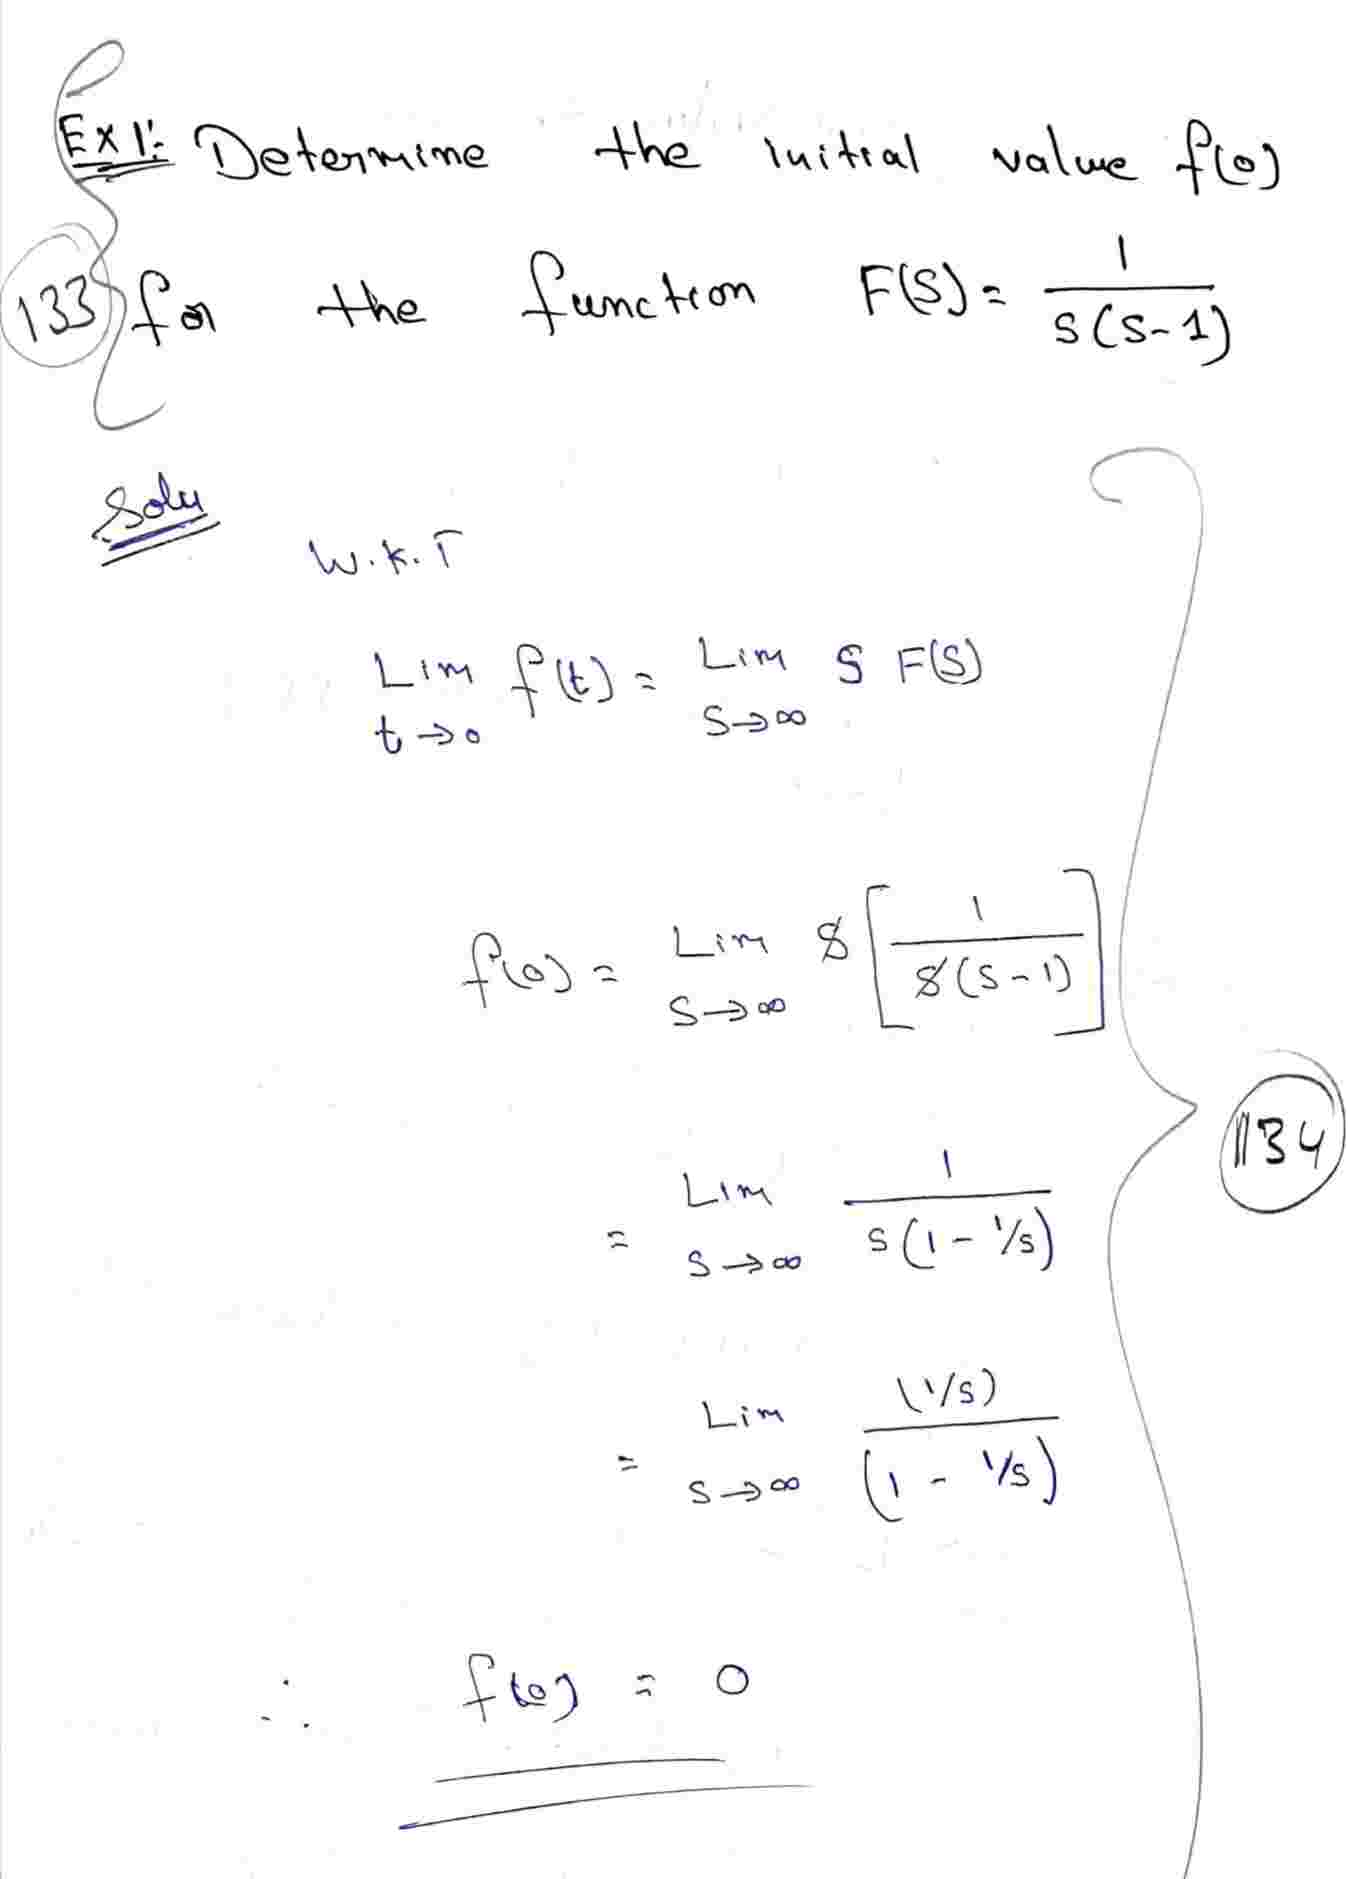 Ex 1: Determine the initial value f(0)
133 for the function F(S) = 1 / S(S-1)
Solu
W.K.T
Lim t→0 f(t) = Lim S→∞ S F(S)
f(0) = Lim S→∞ S [1 / S(S-1)]
134
= Lim S→∞ 1 / S(1 - 1/S)
= Lim S→∞ (1/S) / (1 - 1/S)
∴ f(0) = 0